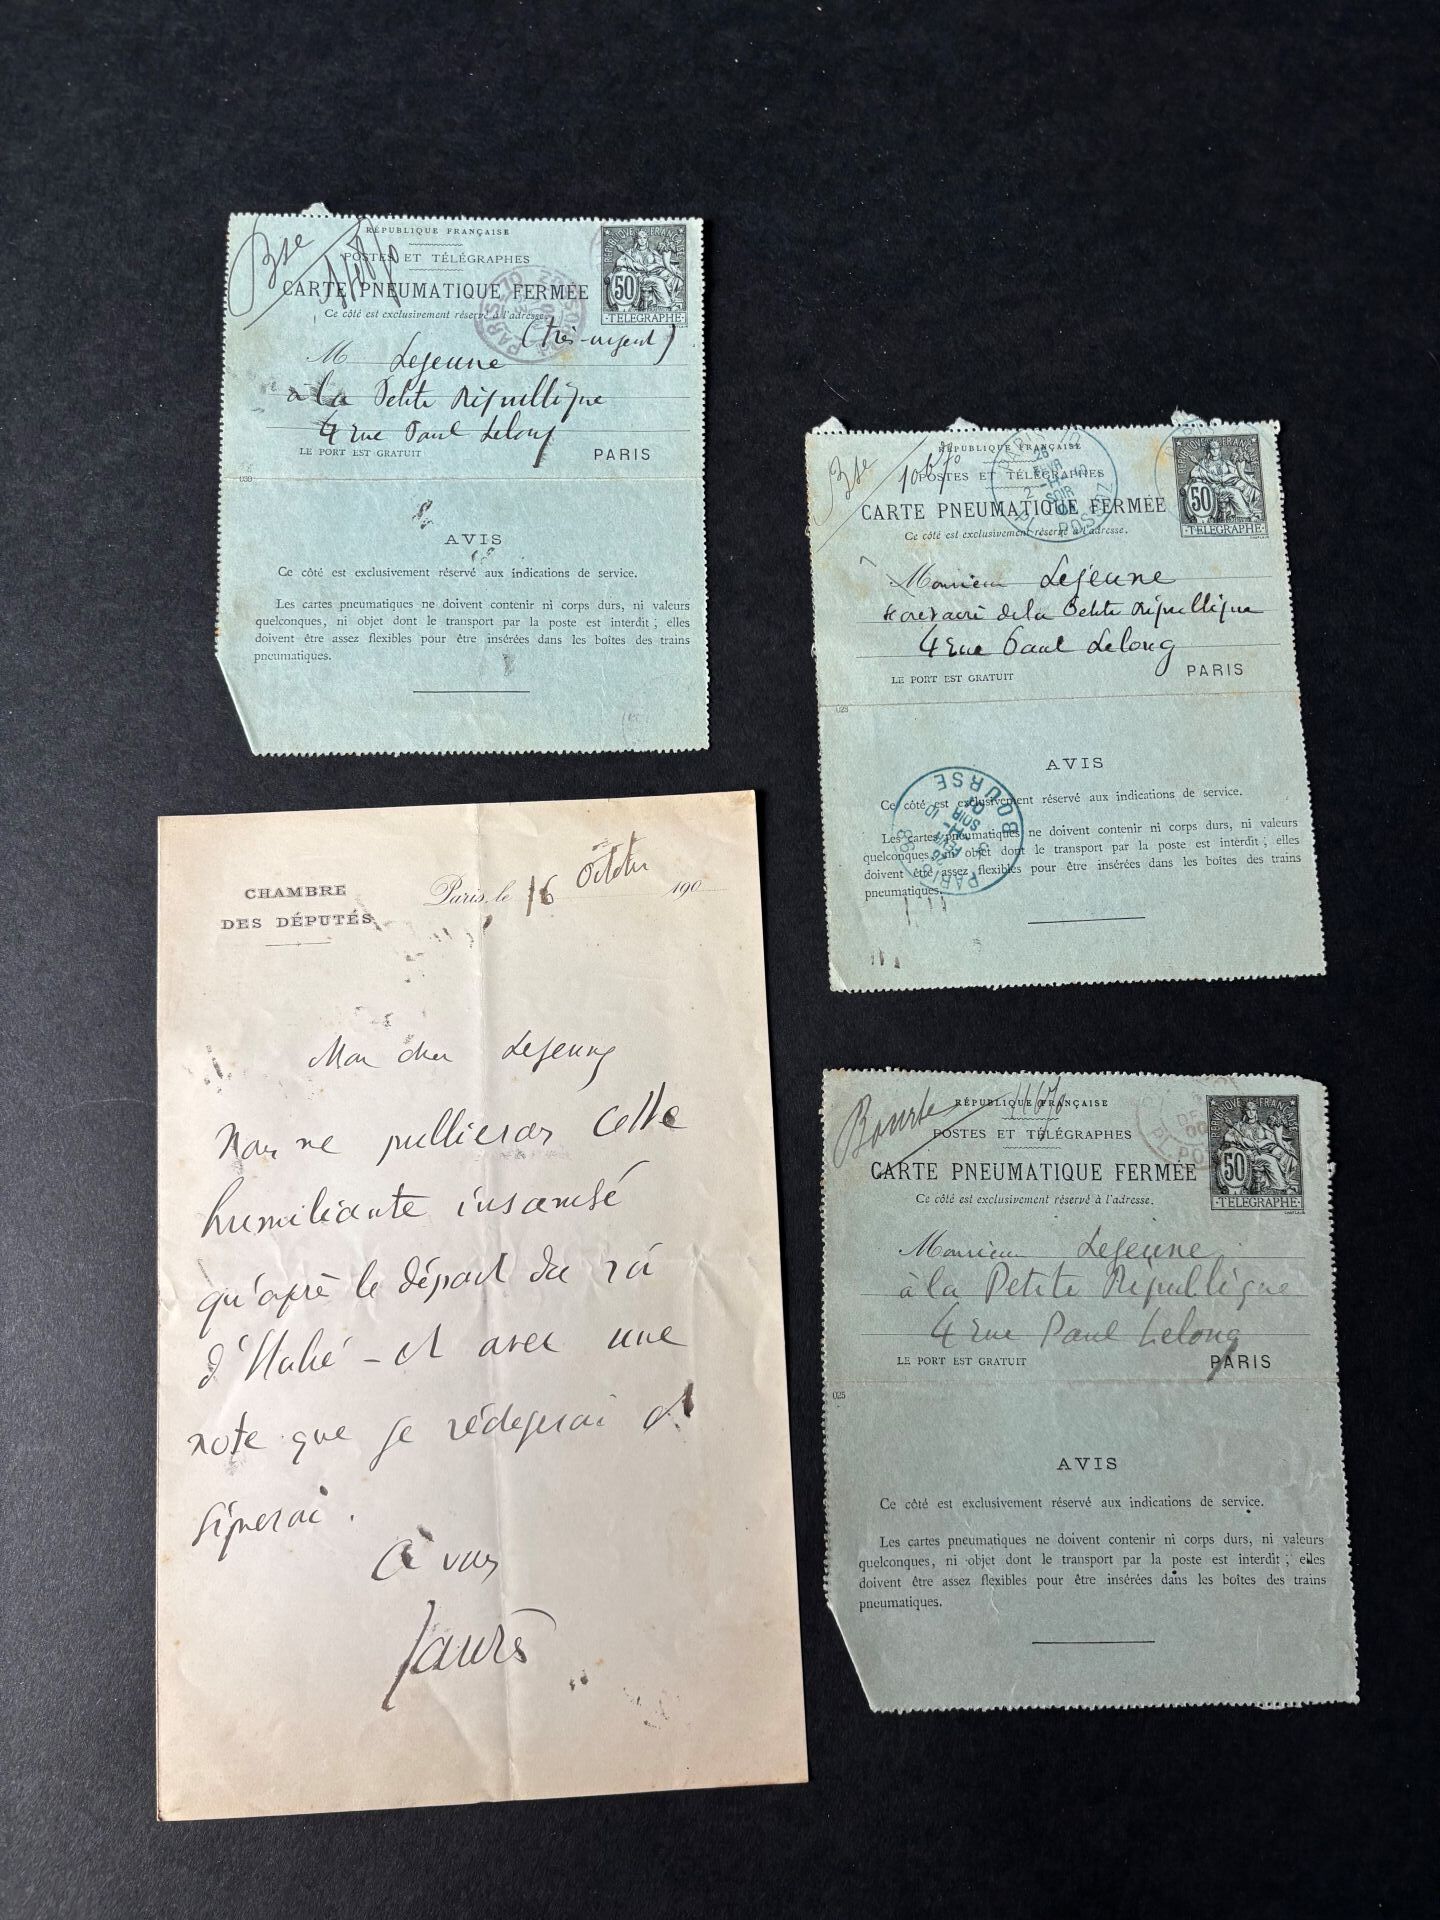 Bse
RÉPUBLIQUE FRANÇAISE
POSTES ET TÉLÉGRAPHES
CARTE PNEUMATIQUE FERMÉE
Ce côté est exclusivement réservé à l'adresse.
REPUBLIQUE FRANÇAISE
50
TÉLÉGRAPHE
(très-urgent)
M Lejeune
à la Petite République
4 rue Paul Lelong
LE PORT EST GRATUIT
PARIS
030
AVIS
Ce côté est exclusivement réservé aux indications de service.
Les cartes pneumatiques ne doivent contenir ni corps durs, ni valeurs
quelconques, ni objet dont le transport par la poste est interdit ; elles
doivent être assez flexibles pour être insérées dans les boîtes des trains
pneumatiques.
Bse
RÉPUBLIQUE FRANÇAISE
POSTES ET TÉLÉGRAPHES
CARTE PNEUMATIQUE FERMÉE
Ce côté est exclusivement réservé à l'adresse.
REPUBLIQUE FRANÇAISE
50
TÉLÉGRAPHE
Monsieur Lejeune
secrétaire de la Petite République
4 rue Paul Lelong
LE PORT EST GRATUIT
PARIS
025
AVIS
Ce côté est exclusivement réservé aux indications de service.
Les cartes pneumatiques ne doivent contenir ni corps durs, ni valeurs
quelconques, ni objet dont le transport par la poste est interdit ; elles
doivent être assez flexibles pour être insérées dans les boîtes des trains
pneumatiques.
PARIS
BOURSE
CHAMBRE
DES DÉPUTÉS
Paris, le 16 Octobre 190
Mon cher Lejeune
Nous ne publierons cette
humiliante insanité
qu'après le départ du roi
d'Italie - et avec une
note que je rédigerai et
signerai.
à vous
Jaurès
Bourse
RÉPUBLIQUE FRANÇAISE
POSTES ET TÉLÉGRAPHES
CARTE PNEUMATIQUE FERMÉE
Ce côté est exclusivement réservé à l'adresse.
REPUBLIQUE FRANÇAISE
50
TÉLÉGRAPHE
Monsieur Lejeune
à la Petite République
4 rue Paul Lelong
LE PORT EST GRATUIT
PARIS
025
AVIS
Ce côté est exclusivement réservé aux indications de service.
Les cartes pneumatiques ne doivent contenir ni corps durs, ni valeurs
quelconques, ni objet dont le transport par la poste est interdit ; elles
doivent être assez flexibles pour être insérées dans les boîtes des trains
pneumatiques.